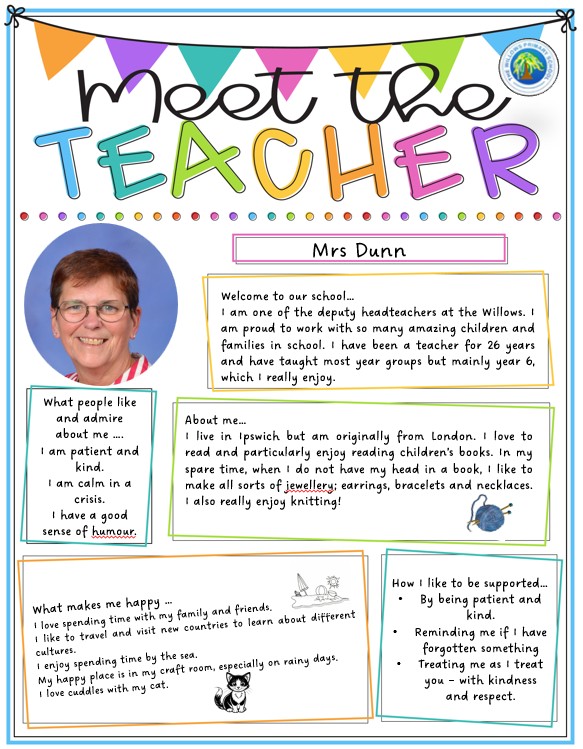 Meet the
TEACHER
THE WILLOWS PRIMARY SCHOOL
Mrs Dunn
Welcome to our school...
I am one of the deputy headteachers at the Willows. I
am proud to work with so many amazing children and
families in school. I have been a teacher for 26 years
and have taught most year groups but mainly year 6,
which I really enjoy.
What people like
and admire
about me ....
I am patient and
kind.
I am calm in a
crisis.
I have a good
sense of humour.
About me...
I live in Ipswich but am originally from London. I love to
read and particularly enjoy reading children's books. In my
spare time, when I do not have my head in a book, I like to
make all sorts of jewellery; earrings, bracelets and necklaces.
I also really enjoy knitting!
What makes me happy ...
I love spending time with my family and friends.
I like to travel and visit new countries to learn about different
cultures.
I enjoy spending time by the sea.
My happy place is in my craft room, especially on rainy days.
I love cuddles with my cat.
How I like to be supported...
• By being patient and
kind.
• Reminding me if I have
forgotten something
• Treating me as I treat
you – with kindness
and respect.